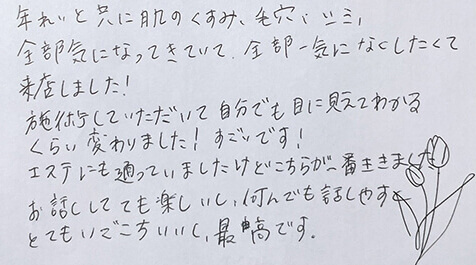 年れいと共に肌のくすみ、毛穴、シミ、
全部気になってきていて、全部一気になくしたくて
来店しました!
施術していただいて自分でも目に見えてわかる
くらい変わりました!すごいです!
エステにも通っていましたけどこちらが一番生きました
お話ししてても楽しいし、何んでも話しやすく
とてもいごこちいいし、最高です。